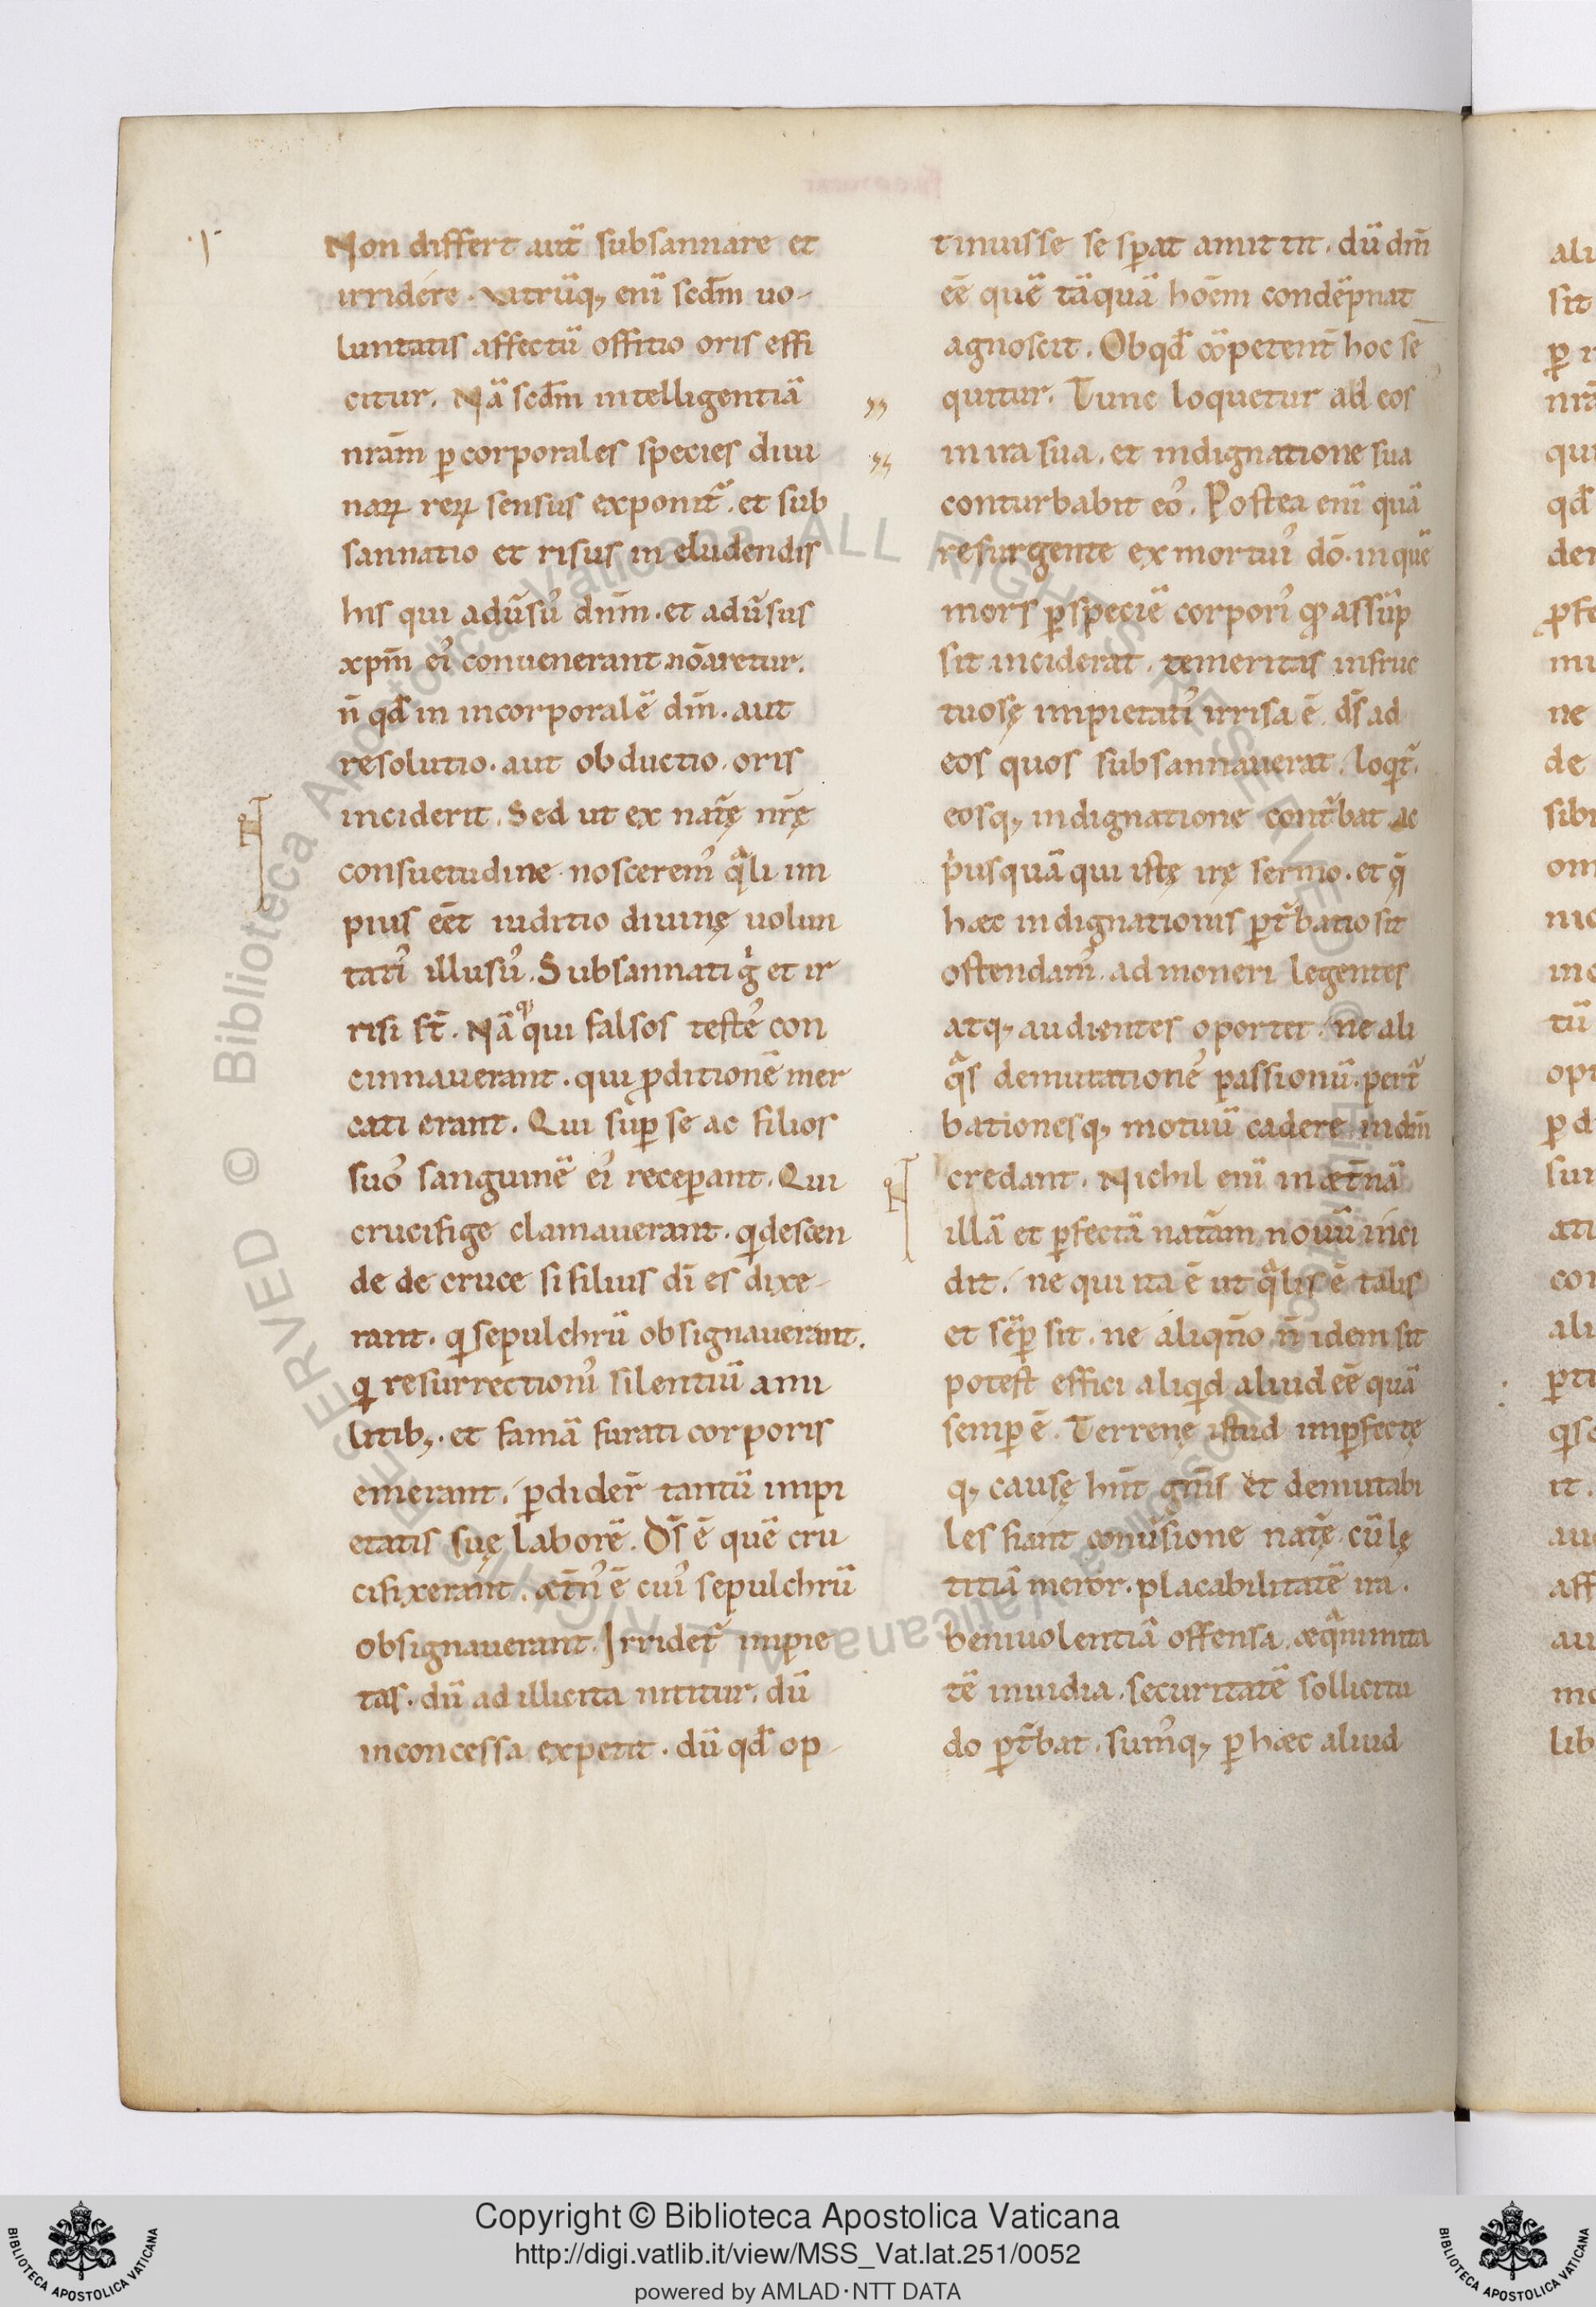 Non differt autē subsannare et
irridere. Vutrūq; enī scdm̄ uo-
luntatis affectū offitio oris effi
citur. Nā scdm̄ intelligentiā
nrām ꝑ corporales species diui
naꝝ reꝝ sensus exponit᷑. et sub
sannatio et risus in eludendis
his qui adūsu᾽ dnm̄. et adūsus
xpm̄ ei᾽ conuenerant nōaretur.
n̄ qđ in incorporalē dm̄. aut
resolutio. aut obductio. oris
inciderit. Sed ut ex natę̄ nrę̄
consuetudine noscerem᾽ qͣli im
pius eēt iuditio diuinę uolun
tati᾽ illusu᾽. Subsannati gͥ et ir
risi st̄. Nā qui falsos teste᾽ con
cinnauerant. qui ꝓditionē mer
cati erant. Qui suꝑ se ac filios
suo᾽ sanguinē ei᾽ receꝑant. Qui
crucifige clamauerant. qͥ descen
de de cruce si filius dī es dixe-
rant. qͥ sepulchrū obsignauerant.
qͥ resurrectioni᾽ silentiū a mi
litib;. et famā furati corporis
emerant. ꝑdider̄ tantū impi
etatis suę laborē. Ds̄ ē quē cru
cifixerant. æt̄n᾽ ē cui᾽ sepulchrū
obsignauerant. Irridet᷑ impie
tas. dū ad illicita nititur. dū
inconcessa expetit. dū qđ op-
tinuisse se sꝑat amittit. dū dm̄
eē quē tāquā hoēm condēpnat
agnoscit. Ob qđ cōpetent̄ hoc se
quitur. Tunc loquetur ad eos
in ira sua. et indignatione sua
conturbabit eo᾽. Postea enī quā
resurgente ex mortui᾽ dō. in quē
mors ꝑ speciē corpori᾽ qͦ assūp
sit inciderat. temeritas infruc
tuosę impietati᾽ irrisa ē. ds̄ ad
eos quos subsannauerat. loqͥt᷑.
eosq; indignatione cont᷑bat. ac
pͥusquā qui istę irę sermo. et qͣ
hæc indignationis ꝑt᷑batio sit
ostendam᾽. admoneri legentes
atq; audientes oportet. ne ali
qͣs demutatione᾽ passionū. pert᷑
bationesq; motuū cadere in dm̄
credant. Nichil enī in æt̄nā
illā et ꝑfectā natām nouū inci
dit. ne qui ita ē ut qͣlis ē talis
et sēꝑ sit. ne aliqn̄o n̄ idem sit
potest effici aliqͥd aliud eē quā
semꝑ ē. Terrenę istud imꝑfectę
q; causę hn̄t gn̄is et demutabi
les fiant conūsione natę̄. cū lę
titiā meror. placabilitatē ira.
beniuolentiā offensa. æqͣnimita
tē inuidia. securitatē sollicitu
do ꝑt᷑bat. sum᾽q; ꝑ hæc aliud
Copyright © Biblioteca Apostolica Vaticana
http://digi.vatlib.it/view/MSS_Vat.lat.251/0052
powered by AMLAD·NTT DATA